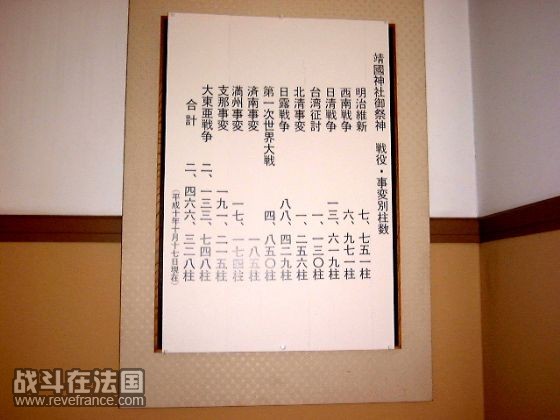 靖國神社御祭神 戦役・事変別柱数
明治維新 七、七五一柱
西南戦争 六、九七一柱
日清戦争 一三、六一九柱
台湾征討 一、一三〇柱
北清事変 一、二五六柱
日露戦争 八八、四二九柱
第一次世界大戦 四、八五〇柱
済南事変 一八五柱
満州事変 一七、一七四柱
支那事変 一九一、二一五柱
大東亜戦争 二、一三三、七四八柱
合計 二、四六六、三二八柱
(平成十年十月十七日現在)
战斗在法国
www.revefrance.com